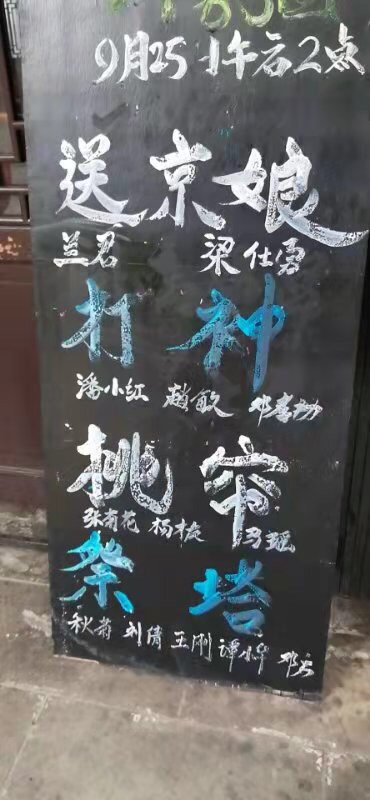 9月25 下午2点
送京娘
兰君 梁仕勇
打神
潘小红 赵敏
挑帘
张菊花 杨梅 马瑶
祭塔
秋菊 刘倩 王刚 谭小华